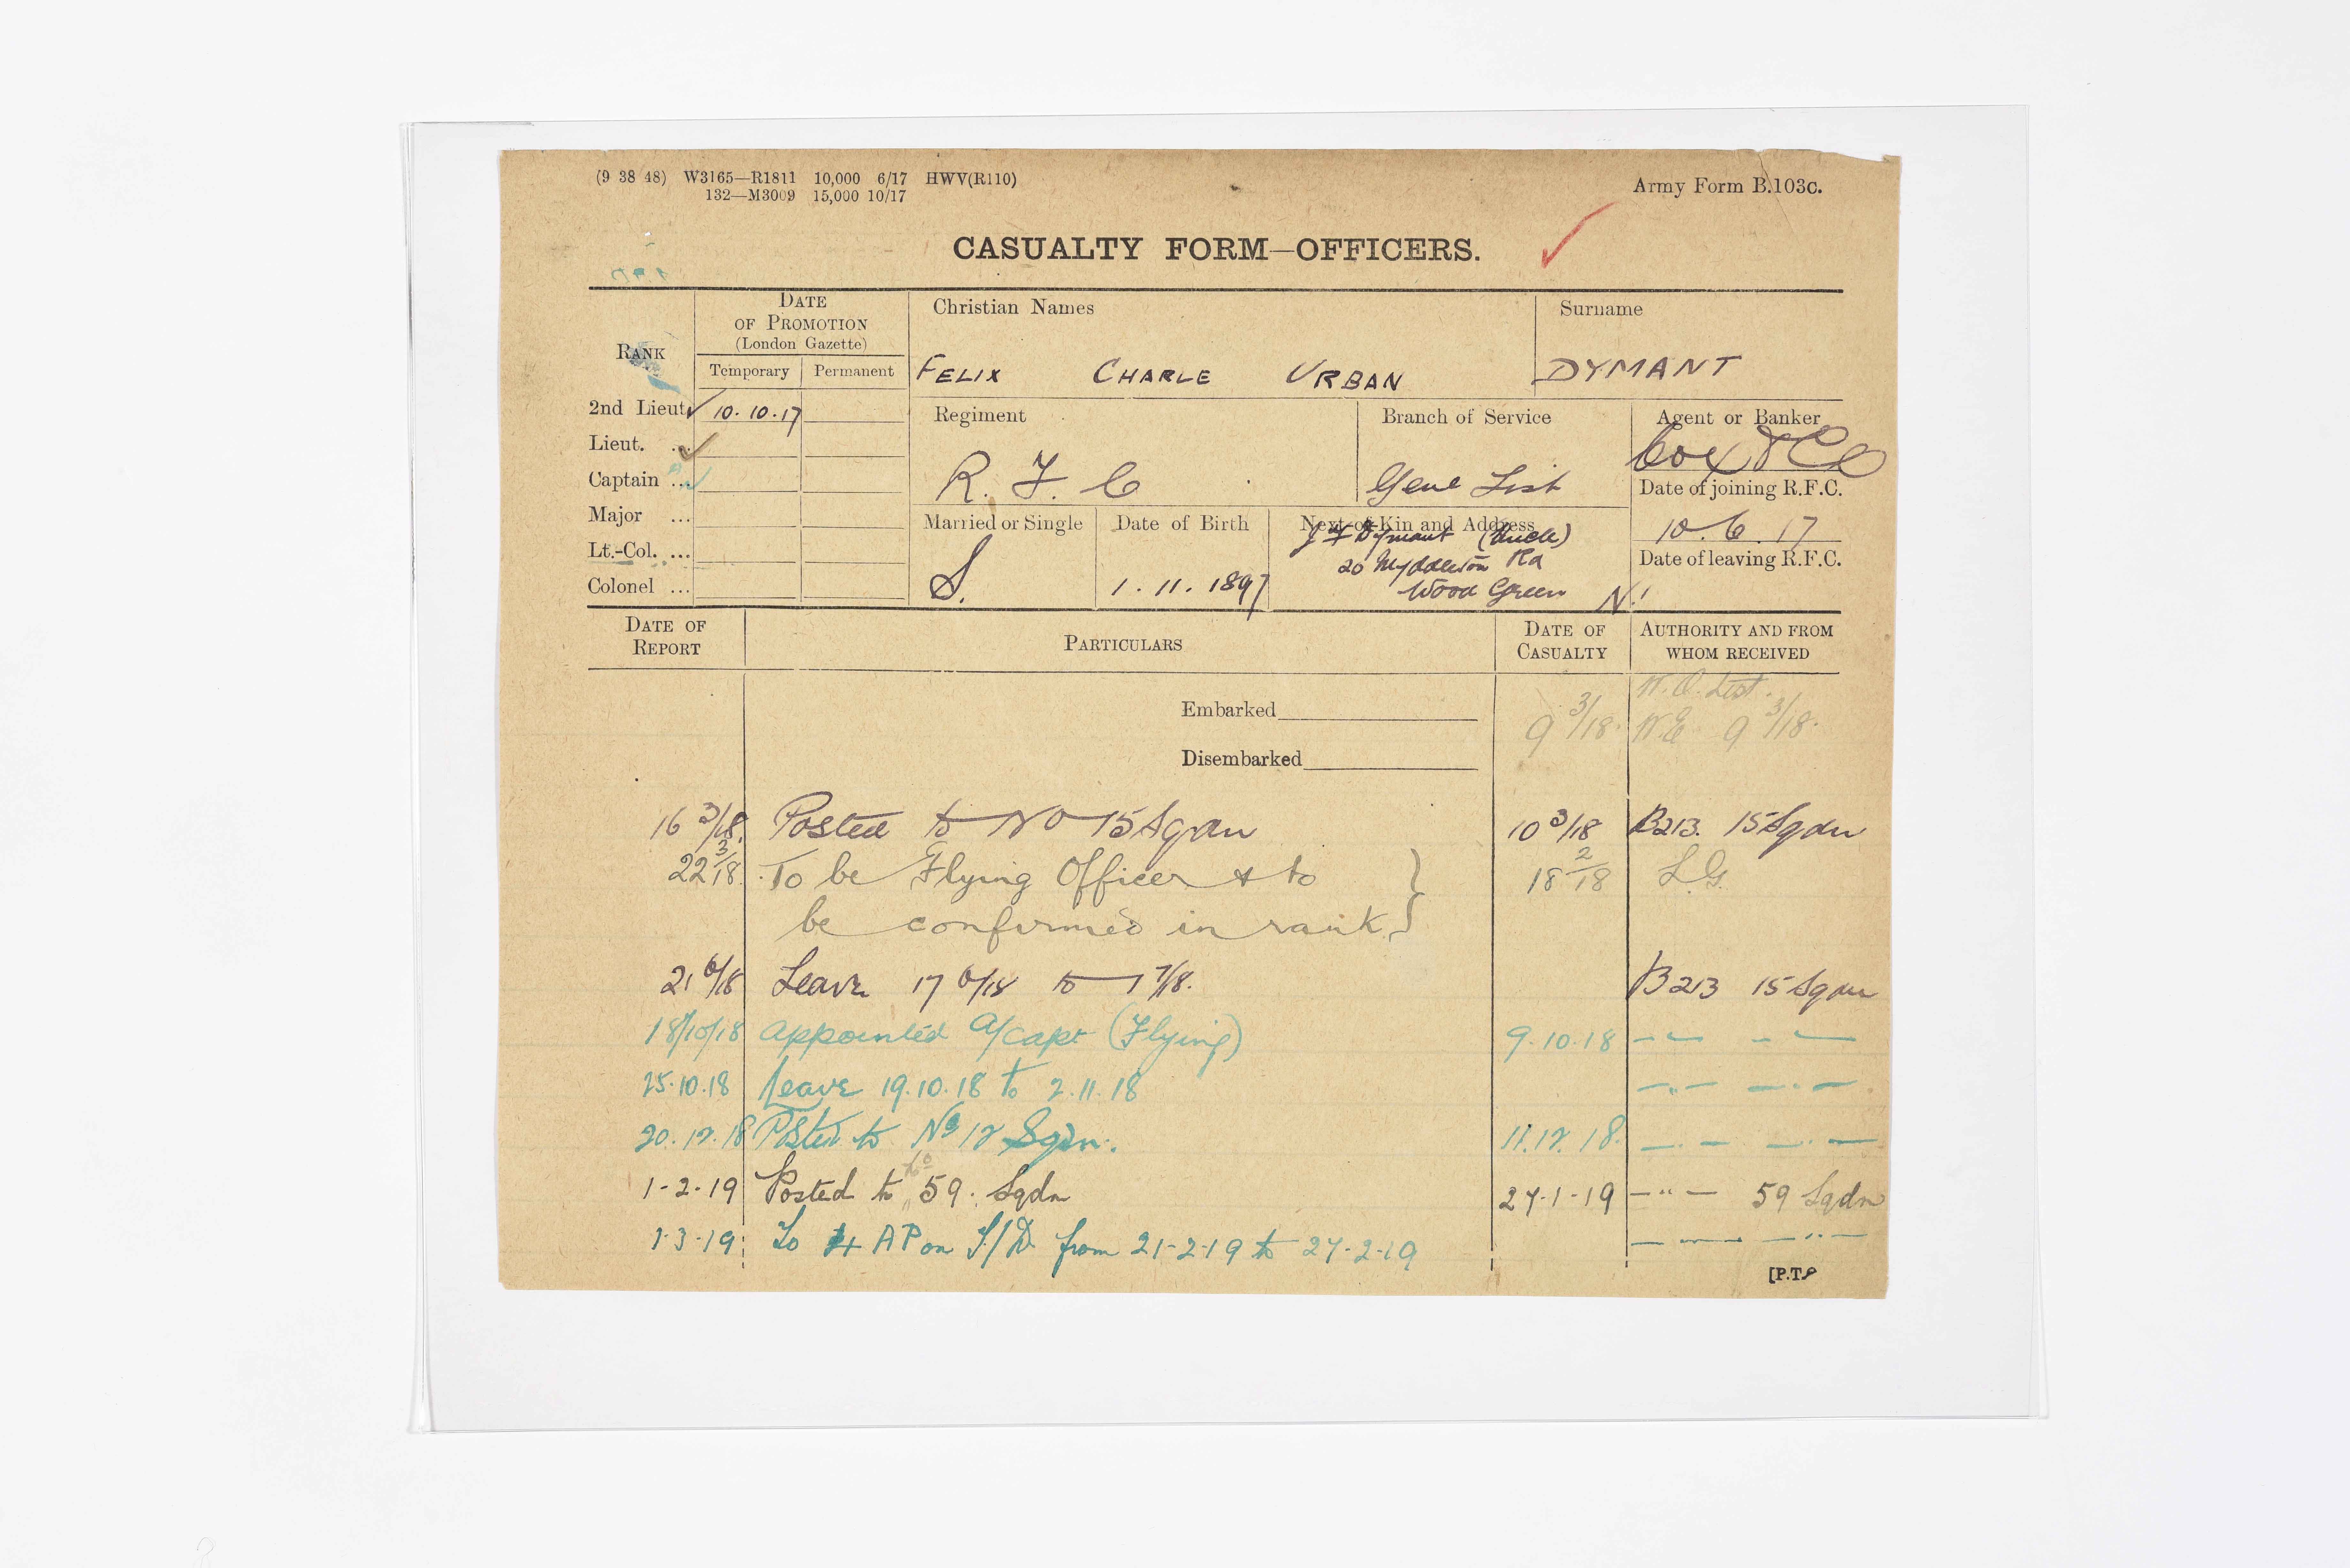 (9 38 48) W3165—R1811 10,000 6/17 HWV(R110)
132—M3009 15,000 10/17
Army Form B.103c.
CASUALTY FORM—OFFICERS.
RANK
DATE OF PROMOTION (London Gazette)
Temporary
Permanent
Christian Names
FELIX CHARLE URBAN
Surname
DYMANT
2nd Lieut. 10.10.17
Lieut. ...
Captain ...
Major ...
Lt.-Col. ...
Colonel ...
Regiment
R. F. C
Branch of Service
Genl List
Agent or Banker
Cox & Co
Date of joining R.F.C.
10.6.17
Date of leaving R.F.C.
Married or Single
S.
Date of Birth
1.11.1897
Next-of-Kin and Address
J F Dymant (Uncle)
20 Myddleton Rd
Wood Green N.
DATE OF REPORT
PARTICULARS
DATE OF CASUALTY
AUTHORITY AND FROM WHOM RECEIVED
W.O. List.
Embarked
9 3/18. W.E 9 3/18.
Disembarked
16 3/18. Posted to No 15 Sqdn 10 3/18 B213. 15 Sqdn
22 3/18. To be Flying Officer & to 18 2/18 L.G.
be confirmed in rank.
21 6/18 Leave 17 6/18 to 1 7/18. B213 15 Sqdn
18/10/18 appointed a/capt (Flying) 9.10.18 — " — — " —
25.10.18 Leave 19.10.18 to 2.11.18 — " — — " —
20.12.18 Posted to No 12 Sqdn. 11.12.18. — " — — " —
1-2-19 Posted to 59. Sqdn 27-1-19 — " — 59 Sqdn
1-3-19 To 4 AP on T/D from 21-2-19 to 27-2-19 — " — — " —
[P.T.O